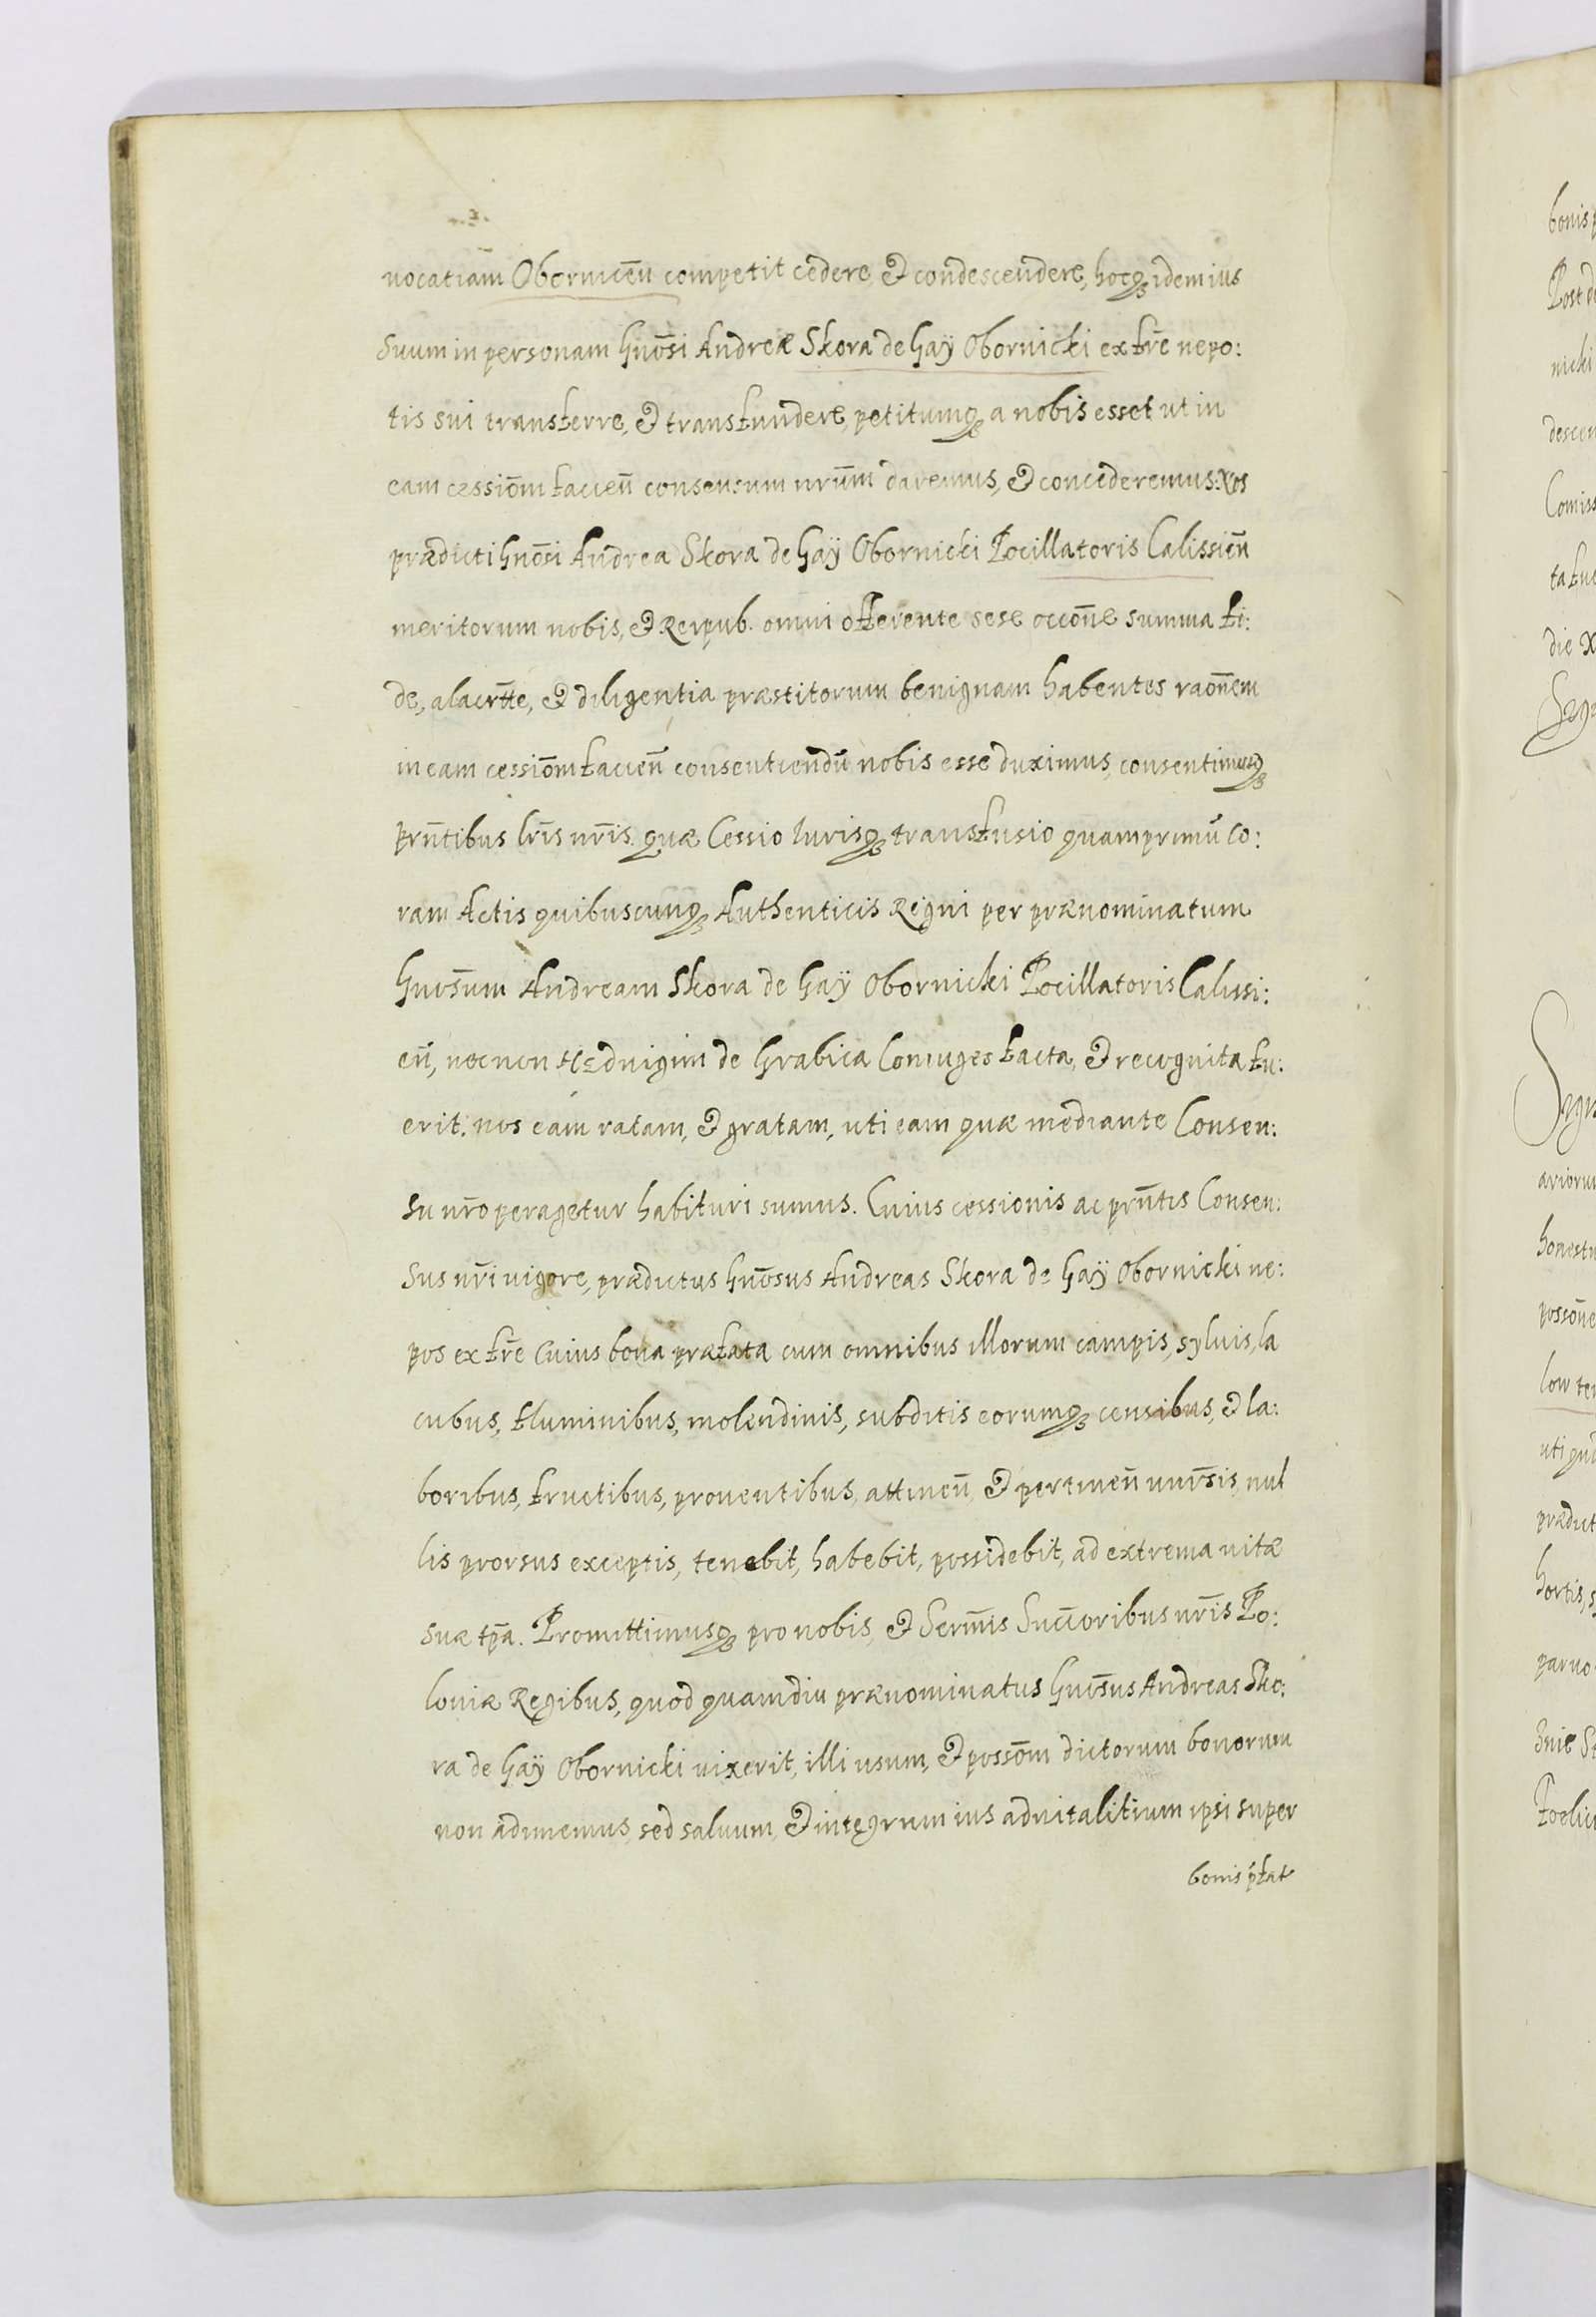 uocatiam Obornicen̄ competit cedere, & condescendere, hocq₃ idem ius
suum in personam Gnōsi Andreæ Skora de Gaÿ Obornicki ex fr̄e nepo:
tis sui transferre, & transfundere, petitumq₃ a nobis esset ut in
eam cessiōm facien̄ consensum nrūm daremus, & concederemus: Nos
prædicti Gnōsi Andrea Skora de Gaÿ Obornicki Pocillatoris Calissien̄
meritorum nobis, & Reipub. omni offerente sese occōne summa fi:
de, alacrtt̄e, & diligentia præstitorum benignam habentes raōnem
in eam cessiōm facien̄ consentiendū nobis esse duximus, consentimusq₃
prn̄tibus lrīs nrīs. quæ Cessio Iurisq₃ transfusio quamprimū co:
ram Actis quibuscunq₃ Authenticis Regni per prænominatum
Gnōsum Andream Skora de Gaÿ Obornicki Pocillatoris Calissi:
en̄, necnon Hedvigim de Grabica Coniuges facta, & recognita fu:
erit. nos eam ratam, & gratam, uti eam quæ mediante Consen:
su nrō peragetur habituri sumus. Cuius cessionis ac prn̄tis Consen:
sus nrī uigore, prædictus Gnōsus Andreas Skora de Gaÿ Obornicki ne:
pos ex fr̄e cuius bona præfata cum omnibus illorum campis, syluis, la
cubus, fluminibus, molendinis, subditis eorumq₃ censibus, & la:
boribus, fructibus, prouentibus, attinen̄ & pertinen̄ unir̄sis, nul
lis prorsus exceptis, tenebit, habebit, possidebit, ad extrema uitæ
suæ tp̄a. Promittimusq₃ pro nobis, & Serm̄is Succ̄oribus nrīs Po:
loniæ Regibus, quod quamdiu prænominatus Gnōsus Andreas Sko:
ra de Gaÿ Obornicki uixerit, illi usum, & possōm dictorum bonorum
non adimemus, sed saluum, & integrum ius aduitalitium ipsi super
bonis p̄fat